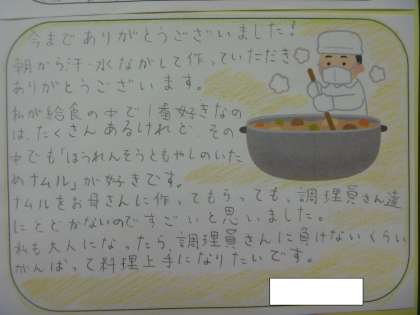 今までありがとうございました!
朝から汗水ながして作っていただき
ありがとうございます。
私が給食の中で1番好きなの
は、たくさんあるけれど、その
中でも「ほうれんそうともやしのいた
めナムル」が好きです。
ナムルをお母さんに作ってもらっても、調理員さん達
にとどかないのですごいと思いました。
私も大人になったら、調理員さんに負けないくらい
がんばって料理上手になりたいです。